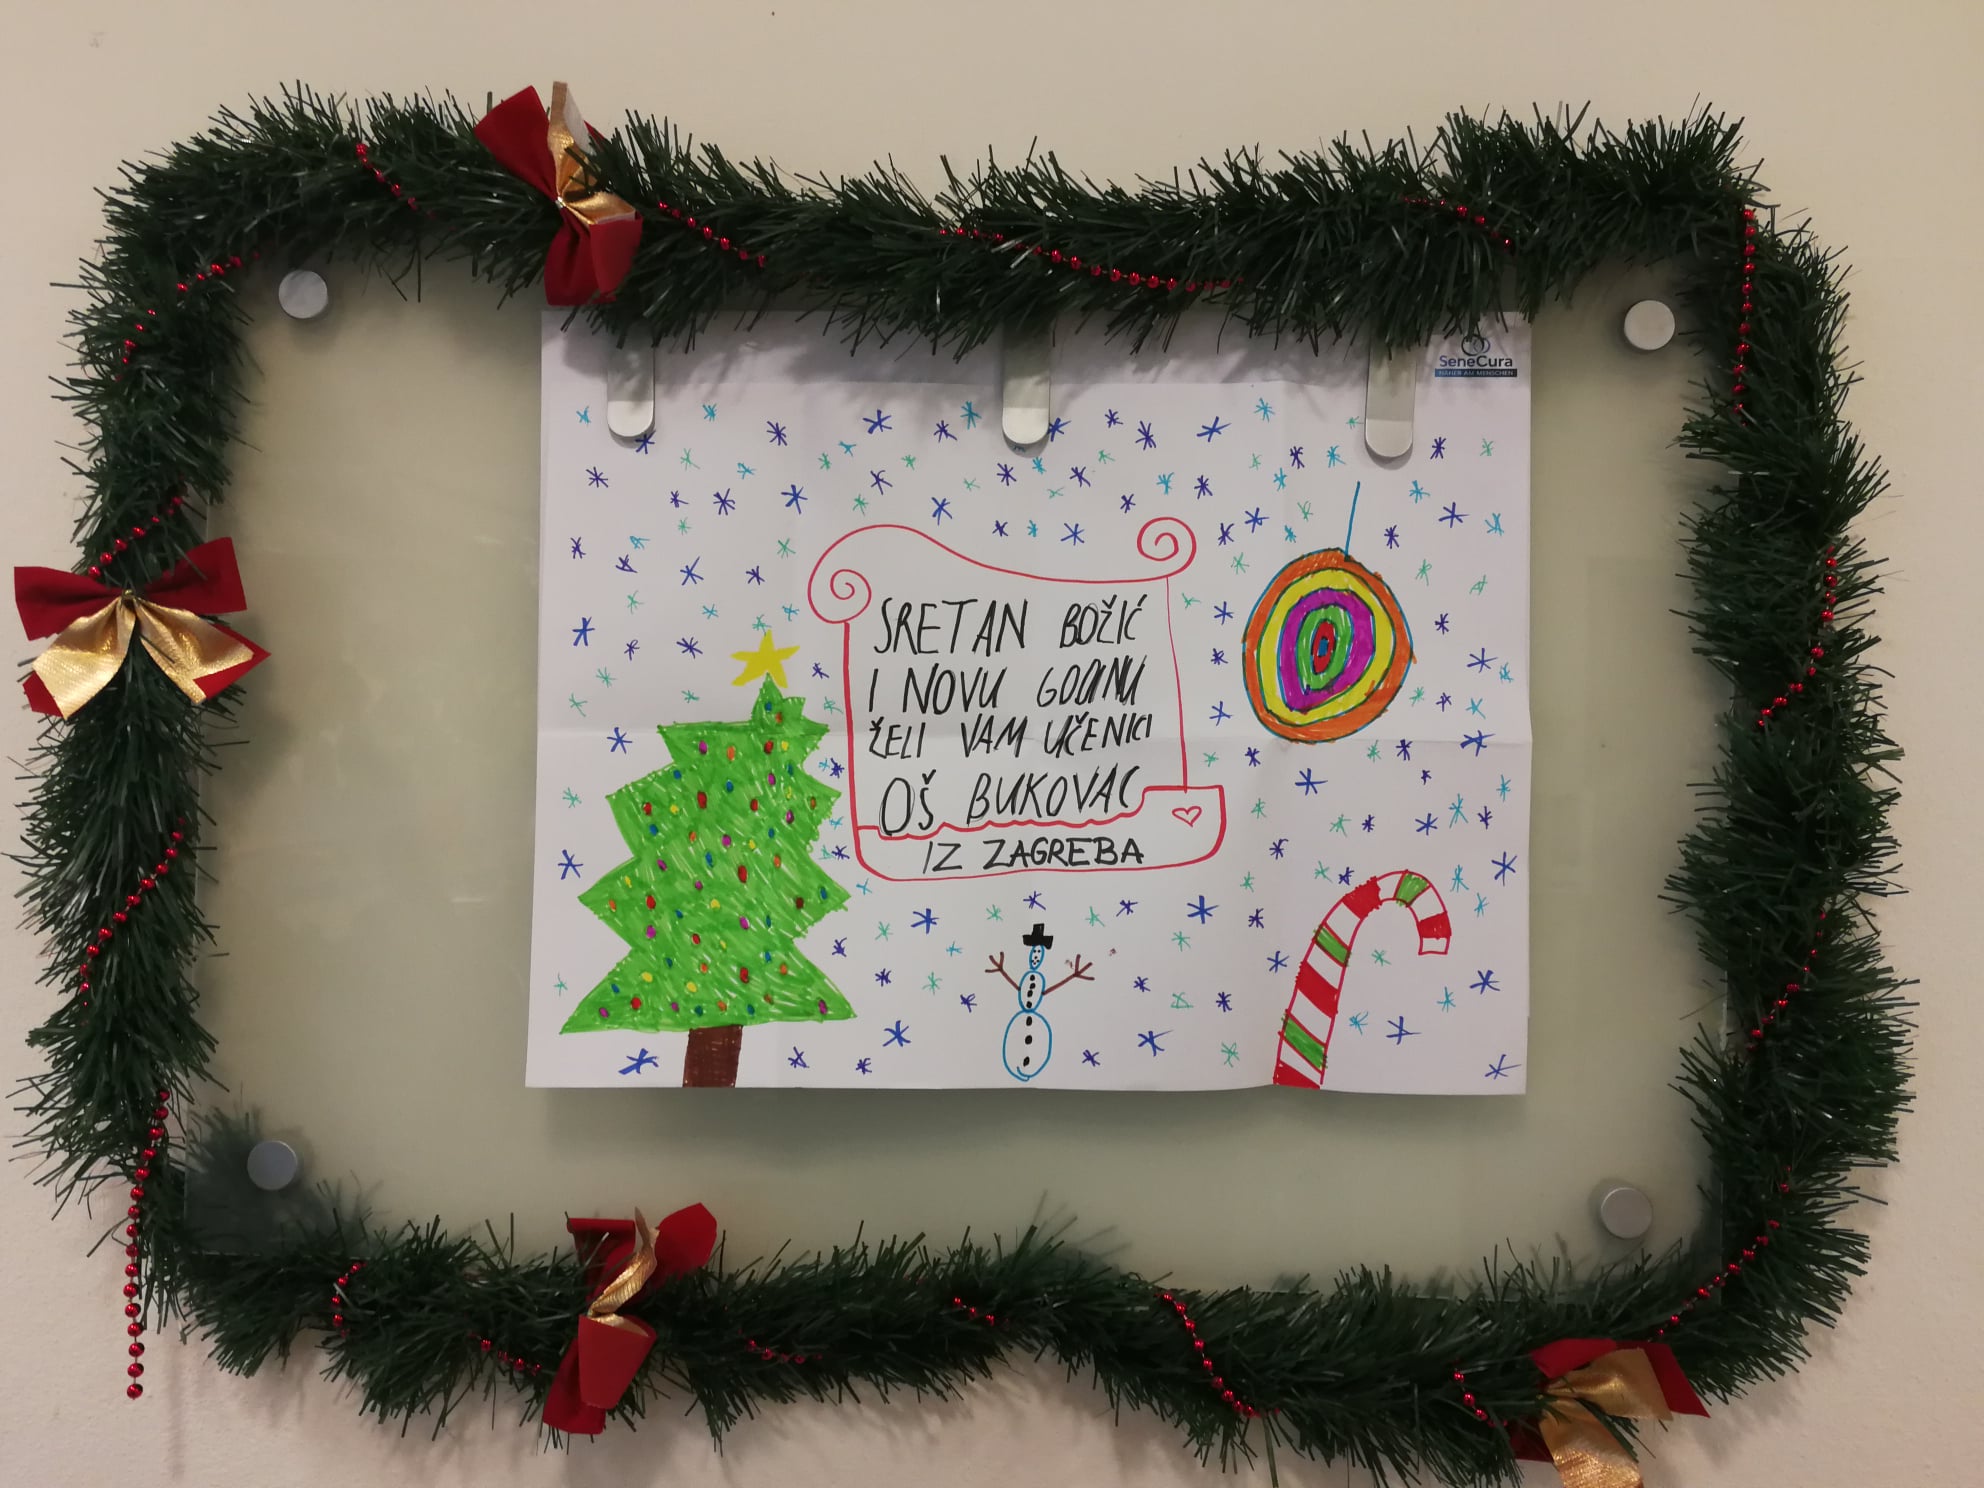 SeneCura
NÄHER AM MENSCHEN
SRETAN BOŽIĆ
I NOVU GODINU
ŽELI VAM UČENICI
OŠ BUKOVAC
IZ ZAGREBA